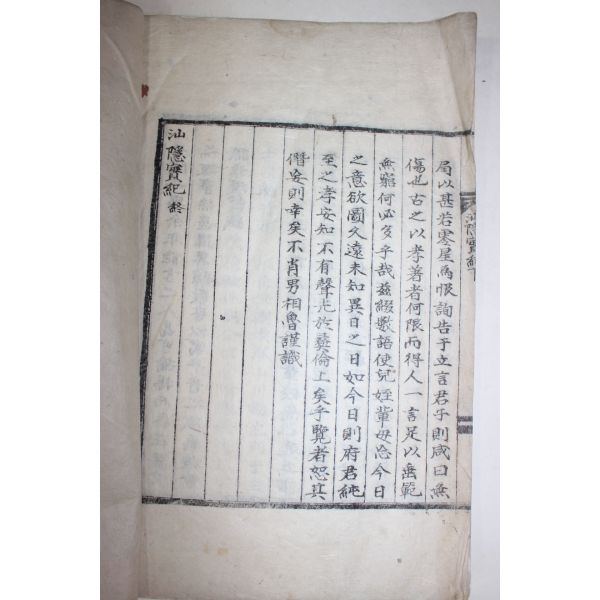 局以甚若零星爲恨詢告于立言君子則咸曰無
傷也古之以孝著者何限而得人一言足以垂範
無窮何必多乎哉玆綴數語使兒姪輩毋忘今日
之意欲圖久遠未知異日之日如今日則府君純
至之孝安知不有聲光於彛倫上矣乎覽者恕其
僭妄則幸矣不肖男相魯謹識
汕隱實紀終
汕隱實紀下